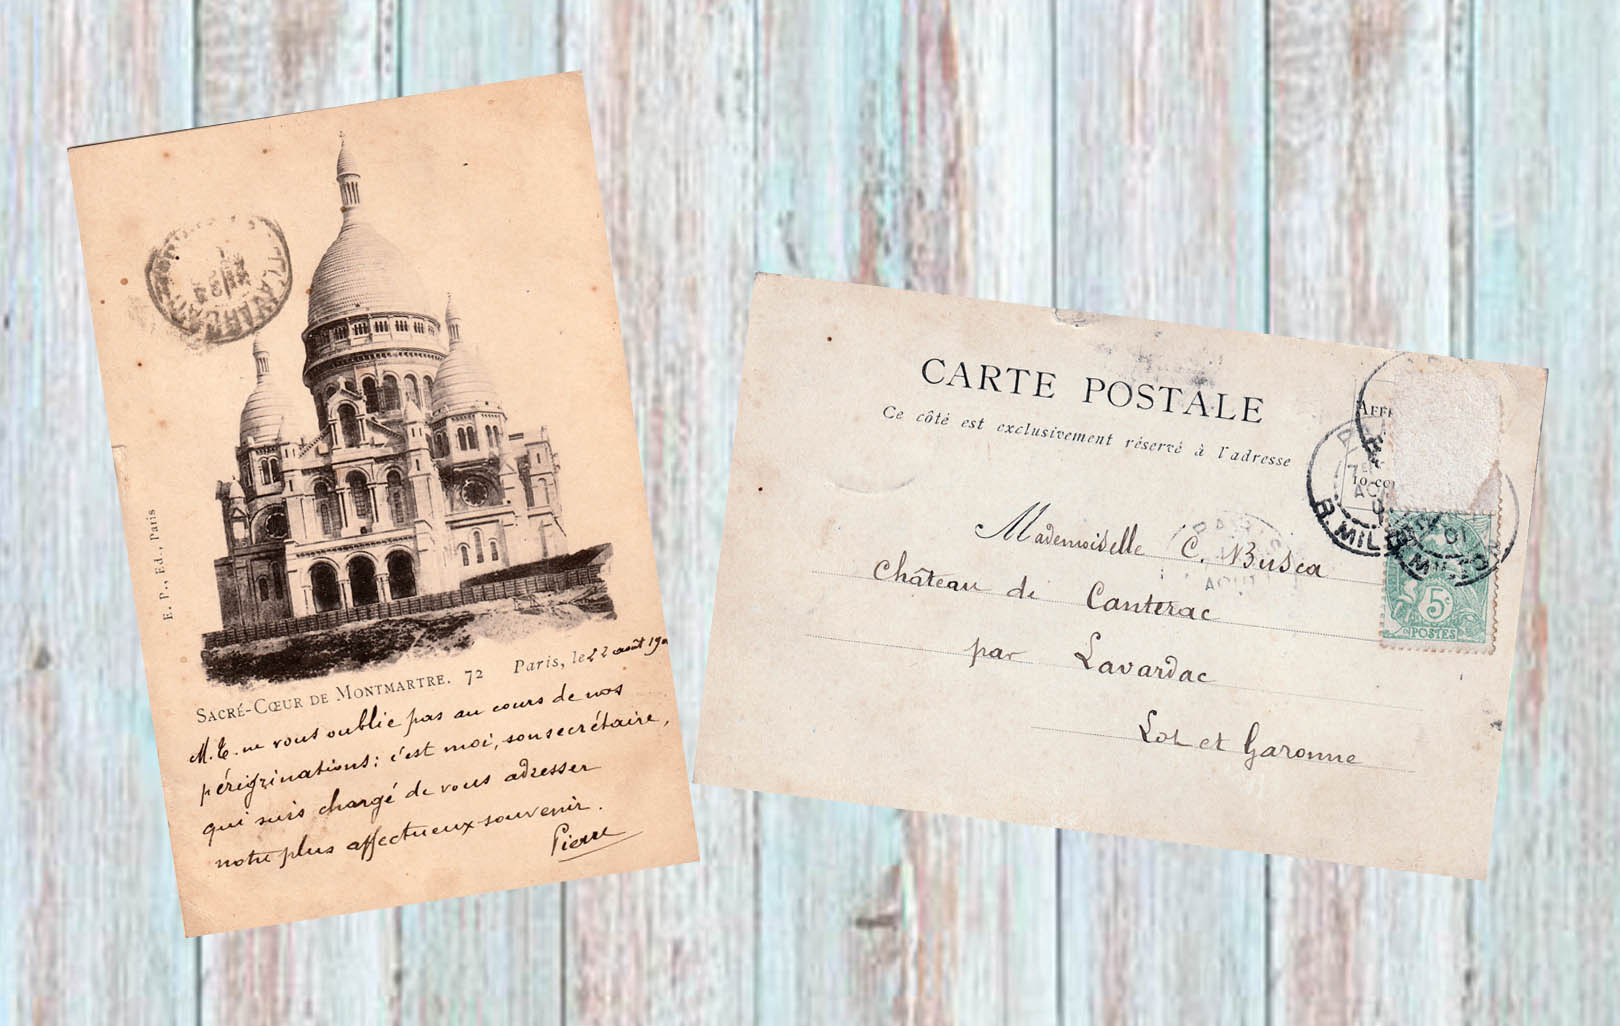 E. P., Ed., Paris
SACRÉ-CŒUR DE MONTMARTRE. 72 Paris, le 22 août 190
M. E. ne vous oublie pas au cours de nos
pérégrinations: c'est moi, son secrétaire,
qui suis chargé de vous adresser
notre plus affectueux souvenir.
Pierre
CARTE POSTALE
Ce côté est exclusivement réservé à l'adresse
Mademoiselle C. Busca
Château de Canterac
par Lavardac
Lot et Garonne
AFF
10
PARIS
AOUT
B. MIL
01
5c
POSTES